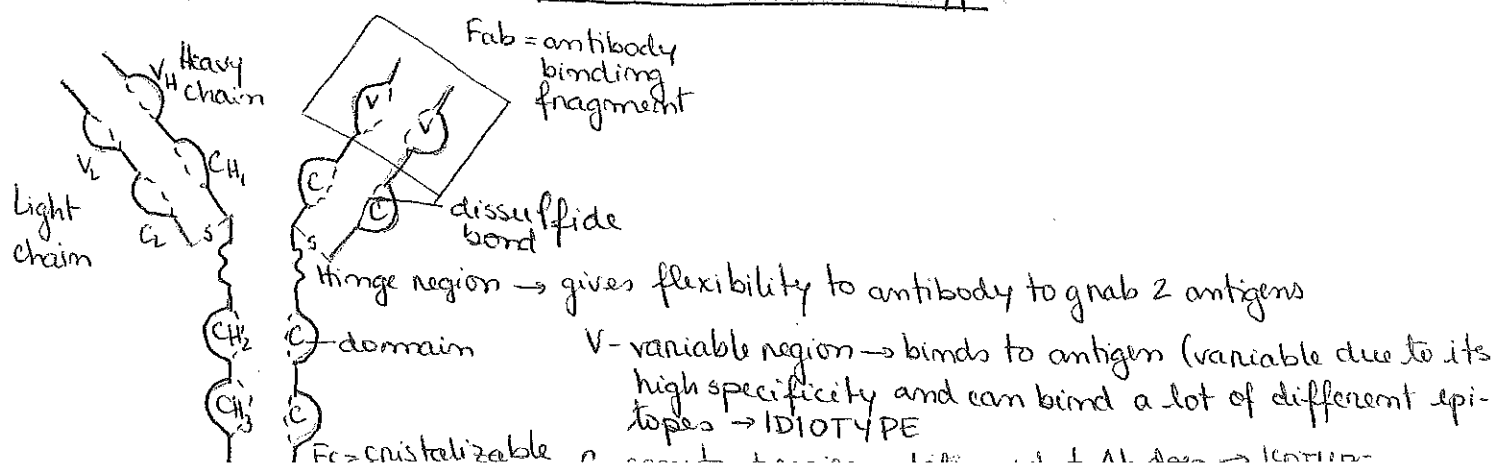 Heavy
chain
V_H
Fab = antibody
binding
fragment
V
V
V_L
CH_1
C
C
Light
chain
C_L
S
S
dissulfide
bond
Hinge region → gives flexibility to antibody to grab 2 antigens
CH_2
C
domain
V- variable region → binds to antigen (variable due to its
high specificity and can bind a lot of different epi-
topes → IDIOTYPE
CH_3
C
Fc = cristalizable